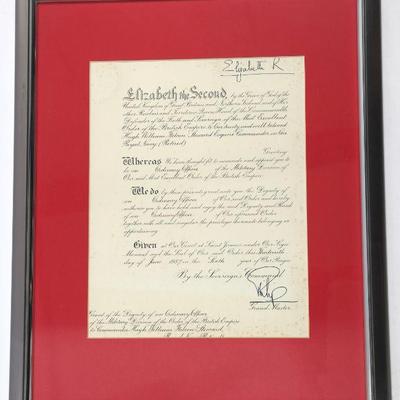 Elizabeth R
Elizabeth the Second, by the Grace of God of the
United Kingdom of Great Britain and Northern Ireland and of Her
other Realms and Territories Queen, Head of the Commonwealth,
Defender of the Faith and Sovereign of the Most Excellent
Order of the British Empire to Our trusty and well beloved
Hugh William Steward Esquire Commander in Our
Royal Navy (Retired)
Greeting
Whereas We have thought fit to nominate and appoint you to
be an Ordinary Officer of the Military Division of
Our said Most Excellent Order of the British Empire
We do by these presents grant unto you the Dignity of
an Ordinary Officer of Our said Order and hereby
authorise you to have hold and enjoy the said Dignity and Rank
of an Ordinary Officer of Our aforesaid Order
together with all and singular the privileges thereunto belonging or
appertaining.
Given at Our Court at Saint James's under Our Sign
Manual and the Seal of Our said Order this Thirteenth
day of June 1957 in the Sixth year of Our Reign
By the Sovereign's Command.
Grand Master.
Grant of the Dignity of an Ordinary Officer
of the Military Division of the Order of the British Empire
to Commander Hugh William Steward,